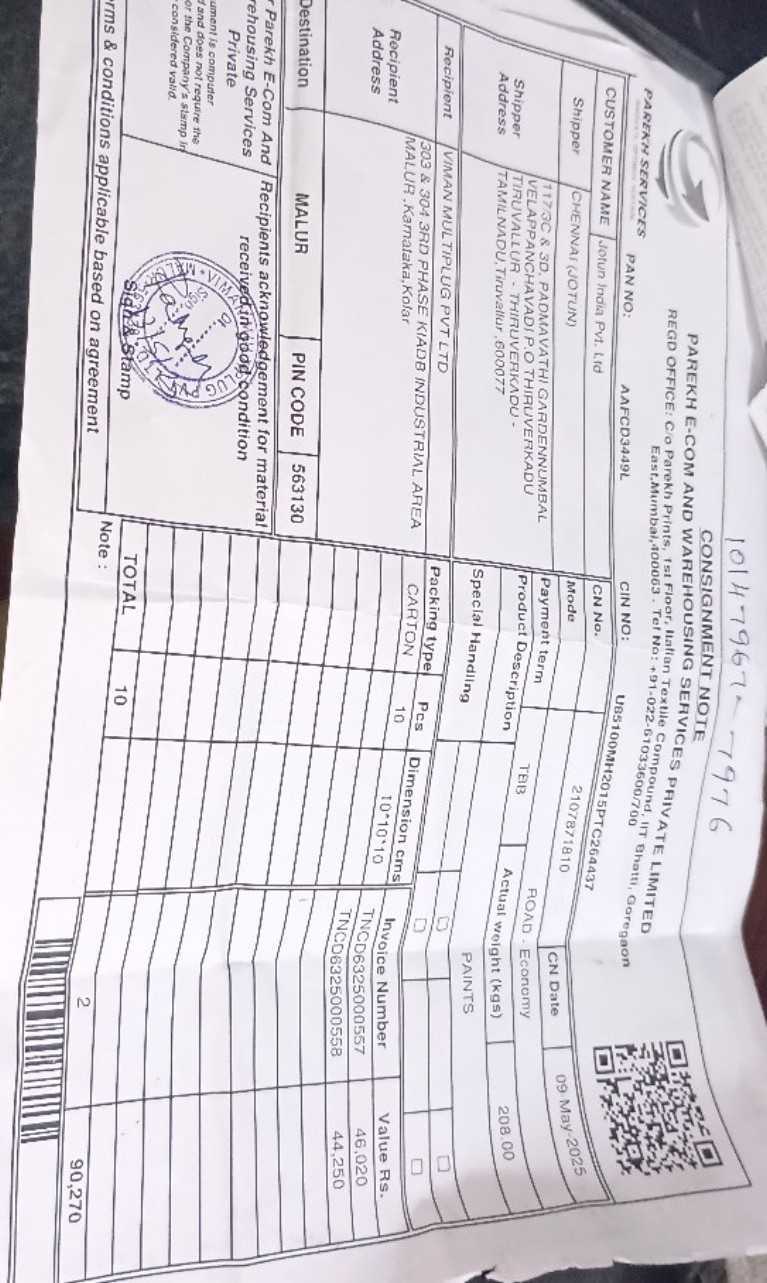 10147967 - 7976
CONSIGNMENT NOTE
PAREKH E-COM AND WAREHOUSING SERVICES PRIVATE LIMITED
REGD OFFICE: C/o Parekh Prints, 1st Floor, Italian Textile Compound, IIT Bhatti, Goregaon
East,Mumbai,400063 . Tel No: +91-022-61033600/700
PAREKH SERVICES
PAN NO: AAFCD3449L CIN NO: U85100MH2015PTC264437
CUSTOMER NAME Jotun India Pvt. Ltd CN No. 2107871810 CN Date 09-May-2025
Shipper CHENNAI (JOTUN) Mode ROAD - Economy
Shipper Address 1173C & 3D, PADMAVATHI GARDENNUMBAL
VELAPPANCHAVADI P.O THIRUVERKADU
TIRUVALLUR - THIRUVERKADU -
TAMILNADU,Tiruvallur ,600077
Payment term TBB Actual weight (kgs) 208.00
Product Description PAINTS
Special Handling
Recipient VIMAN MULTIPLUG PVT LTD
Recipient Address 303 & 304 3RD PHASE KIADB INDUSTRIAL AREA
MALUR ,Karnataka,Kolar
Packing type Pcs Dimension cms Invoice Number Value Rs.
CARTON 10 10*10*10 TNCD6325000557 46,020
TNCD6325000558 44,250
Destination MALUR PIN CODE 563130
r Parekh E-Com And
rehousing Services
Private
Recipients acknowledgement for material
received in good condition
ument is computer
d and does not require the
or the Company's stamp in
considered valid.
Sign & Stamp
TOTAL 10 2 90,270
rms & conditions applicable based on agreement
Note :